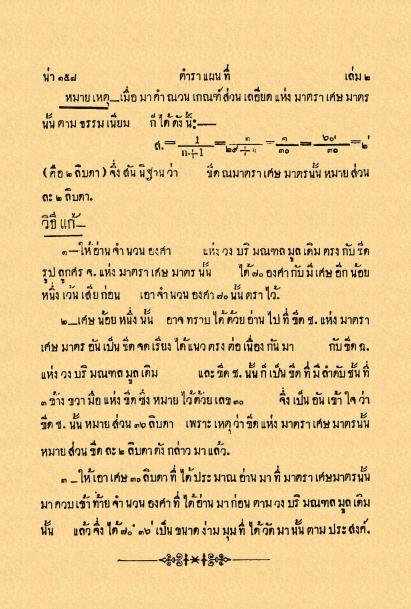 น่า ๑๕๘ ตำราแผนที่ เล่ม ๒
หมายเหตุ_เมื่อมาคำณวนเกณฑ์ส่วนเลอียดแห่งมาตราเศษมาตร
นั้นตามธรรมเนียม ก็ได้ดังนี้:—
ล.= 1/n+1 = ๑/๒๙+๑ = ๑/๓๐ = ๖๐'/๓๐ = ๒'
(คือ ๒ ลิบดา) จึ่งสันนิฐานว่า ขีดณมาตราเศษมาตรนั้นหมายส่วน
ละ ๒ ลิบดา.
วิธีแก้_
๑_ให้อ่านจำนวนองศา แห่งวงบริมณฑลมูลเดิมตรงกับขีด
รูปลูกศร จ. แห่งมาตราเศษมาตรนั้น ได้ ๗๐ องศากับมีเศษอีกน้อย
หนึ่งเว้นเสียก่อน เอาจำนวนองศา ๗๐ นั้นตราไว้.
๒_เศษน้อยหนึ่งนั้น อาจทราบได้ด้วยอ่านไปที่ขีด ช. แห่งมาตรา
เศษมาตรอันเป็นขีดจดเรียงได้แนวตรงต่อเนื่องกันมา กับขีด ฉ.
แห่งวงบริมณฑลมูลเดิม และขีด ช. นั้นก็เป็นขีดที่มีลำดับชั้นที่
๓ ข้างขวามือแห่งขีดซึ่งหมายไว้ด้วยเลข ๓๐ จึ่งเป็นอันเข้าใจว่า
ขีด ช. นั้นหมายส่วน ๓๖ ลิบดา เพราะเหตุว่าขีดแห่งมาตราเศษมาตรนั้น
หมายส่วนขีดละ ๒ ลิบดาดังกล่าวมาแล้ว.
๓_ให้เอาเศษ ๓๐ ลิบดาที่ได้ประมาณอ่านมาที่มาตราเศษมาตรนั้น
มาควบเข้าท้ายจำนวนองศาที่ได้อ่านมาก่อนตามวงบริมณฑลมูลเดิม
นั้น แล้วจึ่งได้ ๗๐° ๓๖' เป็นขนาดง่ามมุมที่ได้วัดมานั้นตามประสงค์.